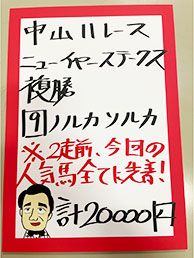 中山11レース
ニューイヤーステークス
複勝
9 ノルカソルカ
※2走前、今回の
人気馬全てに先着!
計20000円